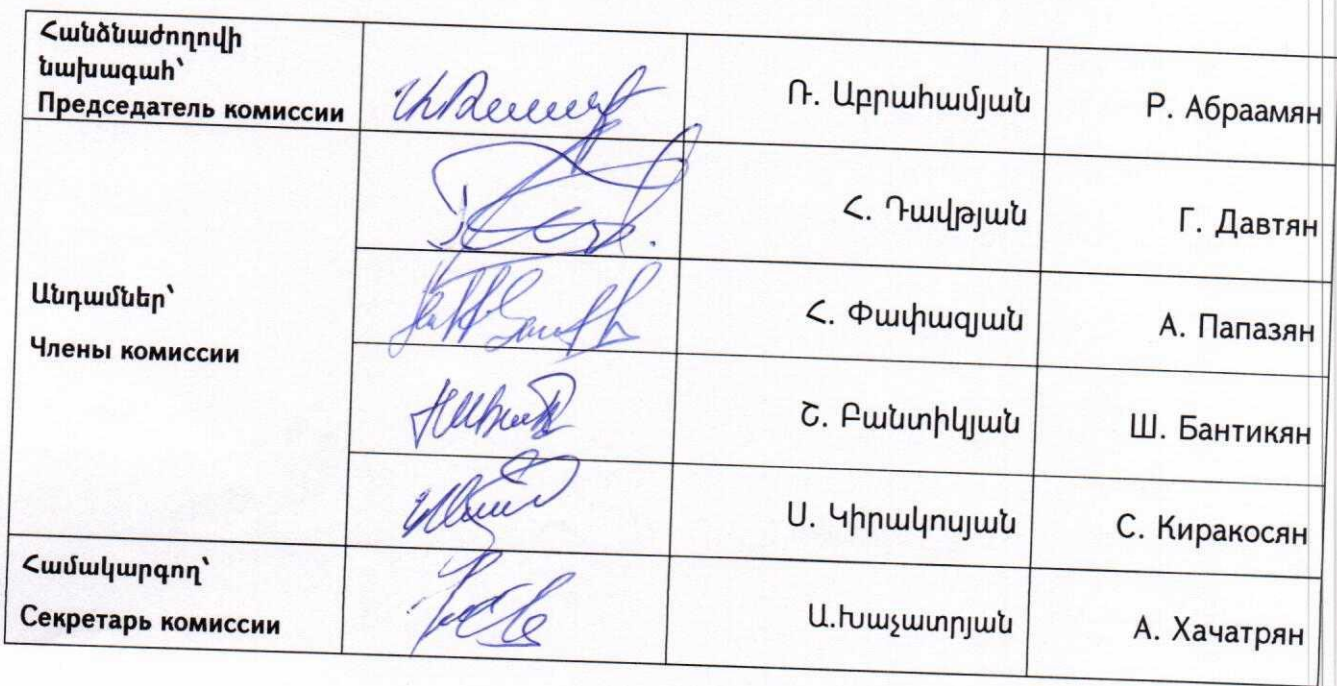 Հանձնաժողովի
նախագահ՝
Председатель комиссии
Ռ. Աբրահամյան
Р. Абраамян
Հ. Դավթյան
Г. Давтян
Անդամներ՝
Члены комиссии
Հ. Փափազյան
А. Папазян
Շ. Բանտիկյան
Ш. Бантикян
Ս. Կիրակոսյան
С. Киракосян
Համակարգող՝
Секретарь комиссии
Ա.Խաչատրյան
А. Хачатрян